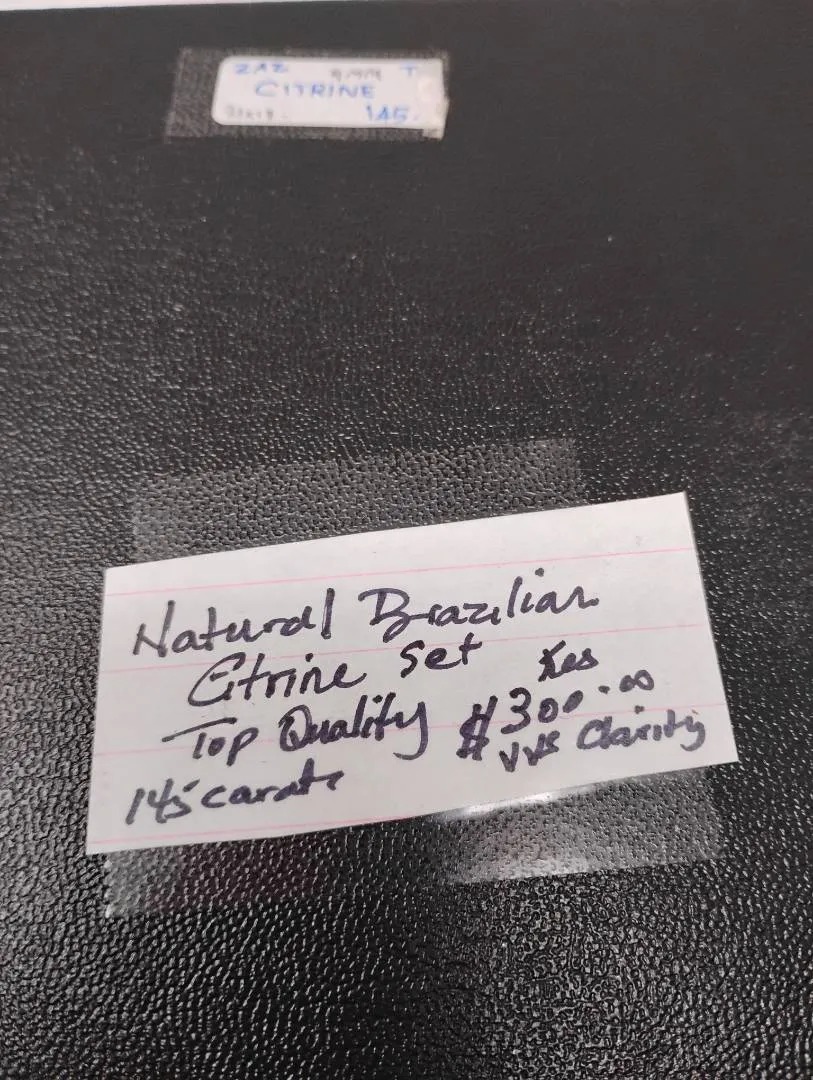 CITRINE
145.
Natural Brazilian
Citrine set
Top Quality $300.00
145 carats VVS Clarity